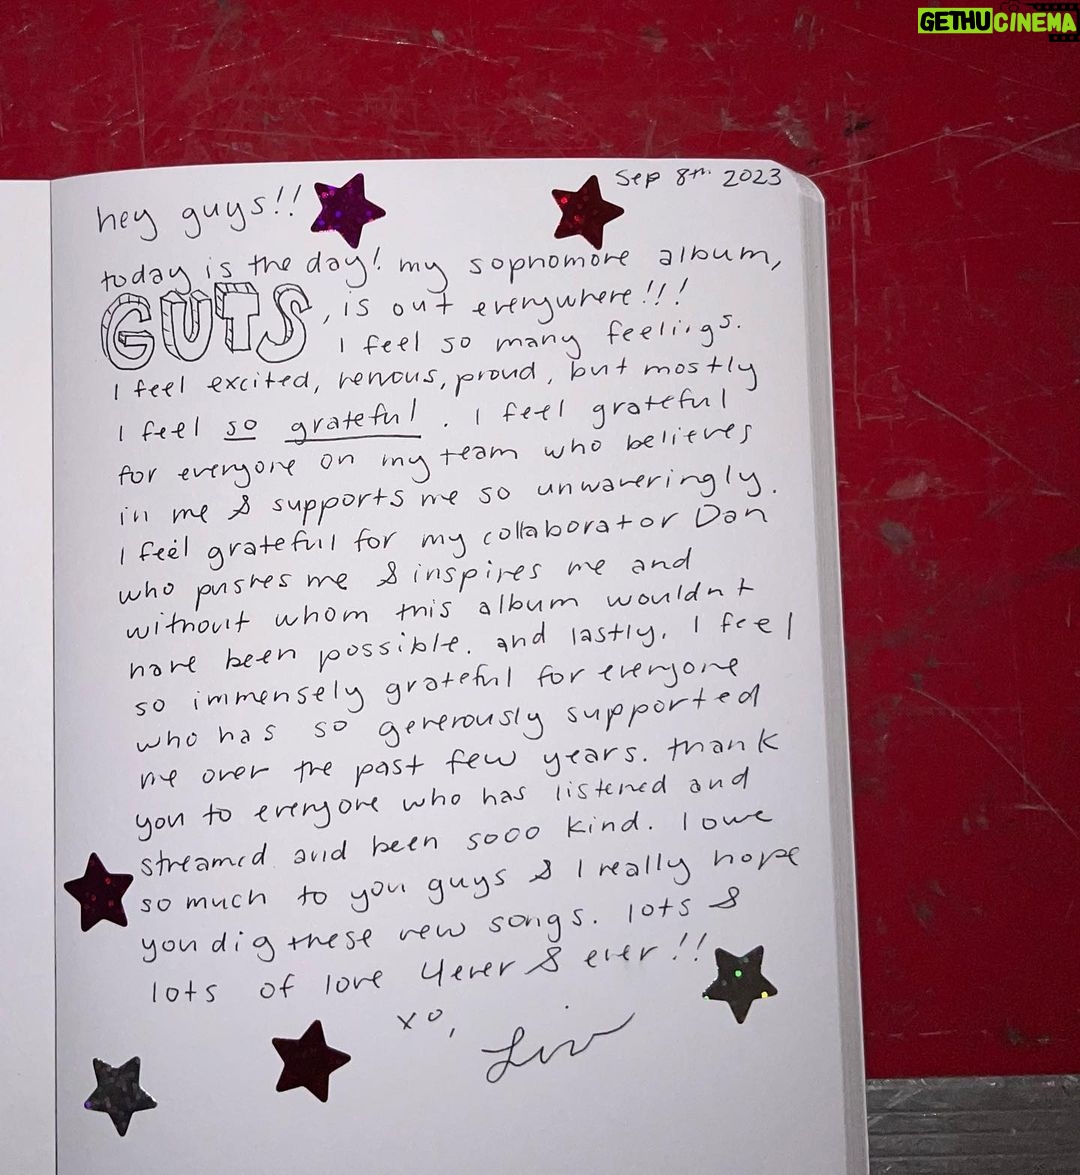 GETHUCINEMA
Sep 8th 2023
hey guys!!
today is the day! my sophomore album,
GUTS, is out everywhere!!!
I feel so many feelings.
I feel excited, nervous, proud, but mostly
I feel so grateful. I feel grateful
for everyone on my team who believes
in me & supports me so unwaveringly.
I feel grateful for my collaborator Dan
who pushes me & inspires me and
without whom this album wouldnt
have been possible. and lastly, I feel
so immensely grateful for everyone
who has so generously supported
me over the past few years. thank
you to everyone who has listened and
streamed and been sooo kind. I owe
so much to you guys & I really hope
you dig these new songs. lots &
lots of love 4ever & ever!!
xo,
Liv